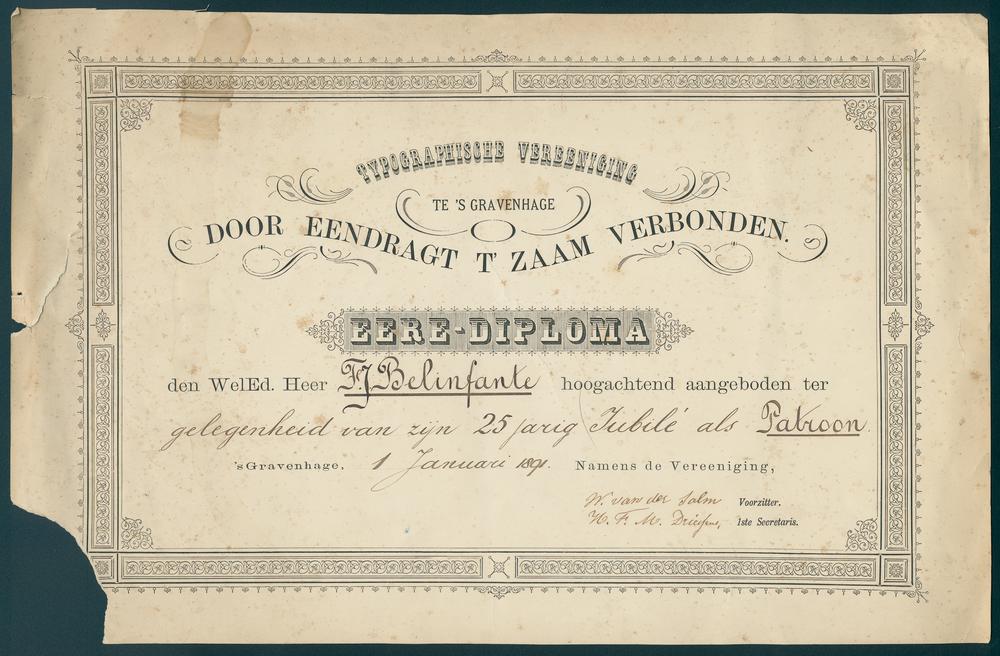 TYPOGRAPHISCHE VEREENIGING
TE 'S GRAVENHAGE
DOOR EENDRAGT T' ZAAM VERBONDEN.
EERE-DIPLOMA
den WelEd. Heer F.J. Belinfante hoogachtend aangeboden ter
gelegenheid van zijn 25 jarig Jubilé als Patroon.
'sGravenhage, 1 Januari 1891. Namens de Vereeniging,
W. van der Salm Voorzitter.
H. F. M. 1ste Secretaris.